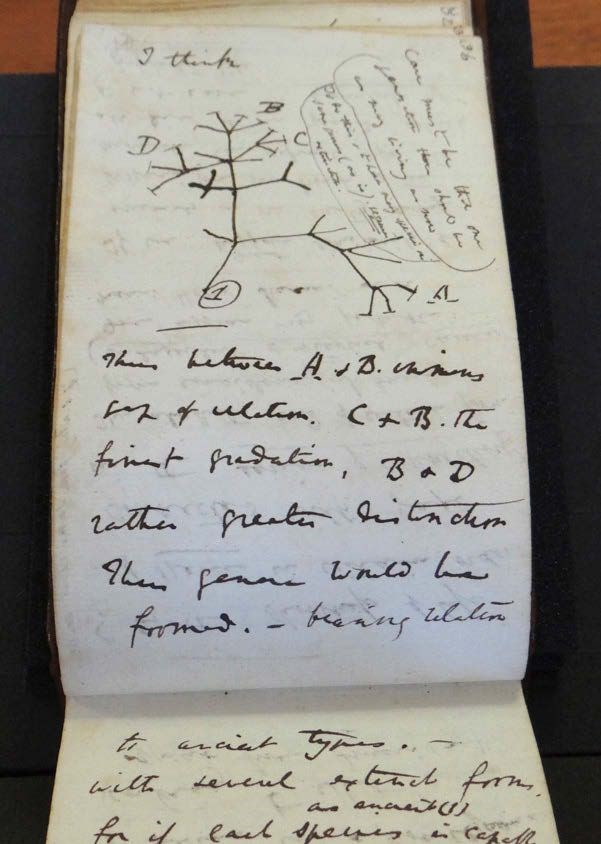 I think
Case must be that one
generation then should be
as many living as now
To do this & to have many species in
same genus (as is) requires
extinction.
B
D
C
A
1
Thus between A & B. immense
gap of relation. C & B. the
finest gradation, B & D
rather greater distinction
Thus genera would be
formed. — bearing relation
to ancient types. —
with several extinct forms,
as ancient (1)
for if each species is